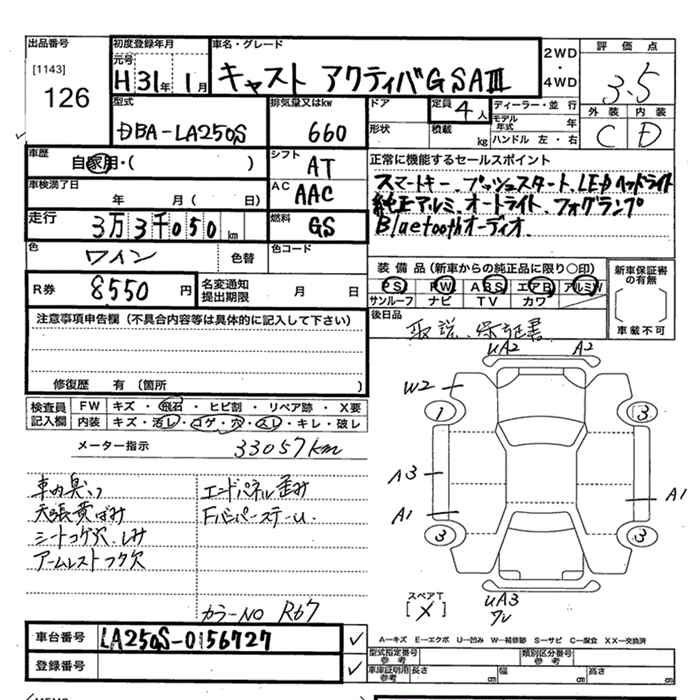 出品番号
[1143]
126
初度登録年月
元号
H 31年 1月
車名・グレード
キャスト アクティバGSAⅢ
2WD
・
4WD
評価点
3.5
外装 内装
C D
型式
DBA-LA250S
排気量又はkw
660
ドア
形状
定員 4人
積載 kg
ディーラー・並行
モデル年式 年
ハンドル 左・右
車歴
自家用・( )
シフト
AT
車検満了日
年 月( 日)
AC
AAC
走行
3万3千050km
燃料
GS
色
ワイン
色替
色コード
R券
8550円
名変通知
提出期限
月 日
正常に機能するセールスポイント
スマートキー、プッシュスタート、LEDヘッドライト
純正アルミ、オートライト、フォグランプ
Bluetoothオーディオ
装備品(新車からの純正品に限り○印)
PS PW ABS エアB アルミW
サンルーフ ナビ TV カワ
新車保証書
の有無
[ ]
車載不可
後日品
取説、保証書
注意事項申告欄(不具合内容等は具体的に記入して下さい)
修復歴 有(箇所 )
検査員
記入欄
FW キズ・飛石・ヒビ割・リペア跡・X要
内装 キズ・汚レ・コゲ・穴・スレ・キレ・破レ
メーター指示
33057km
車内臭い
天張黄ばみ
シートコゲ穴、しみ
アームレストフタ欠
エンドパネル歪み
Fバンパーステーu.
カラーNo R67
UA2
A2
W2
1
3
A3
A1
A1
3
3
スペアT
[×]
UA3
ワレ
A—キズ E—エクボ U—凹み W—補修跡 S—サビ C—腐食 XX—交換済
車台番号
LA250S-0156727
✓
登録番号
✓
型式指定番号
参考
類別区分番号
参考
車庫証明用
参考
長さ
幅
高さ